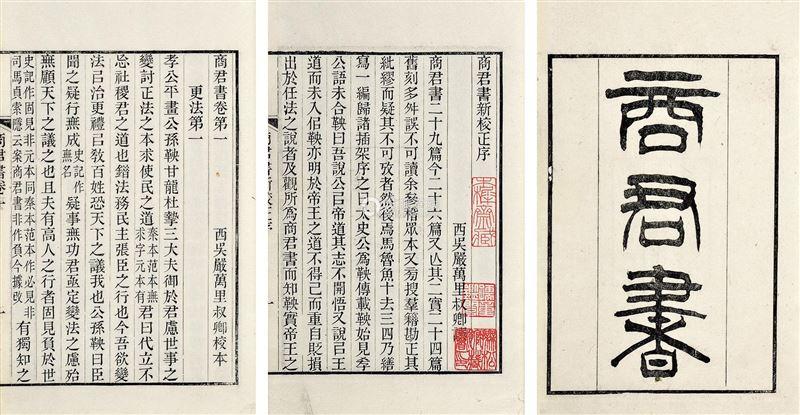 商君書
商君書新校正序
西吳嚴萬里叔卿
商君書二十九篇今二十六篇又亾其二實二十四篇
舊刻多舛誤不可讀余參稽眾本又㫄搜羣籍勘正其
紕繆而疑其不可攷者然後焉馬魯魚十去三四乃繕
寫一編歸諸插架序之曰太史公為鞅傳載鞅始見孝
公語未合鞅曰吾說公㠯帝道其志不開悟又說㠯王
道而未入佀鞅亦明於帝王之道不得已而重自貶損
出於任法之說者及觀所為商君書而知鞅實帝王之
商君書卷第一
西吳嚴萬里叔卿校本
更法第一
孝公平畫公孫鞅甘龍杜摯三大夫御於君慮世事之
變討正法之本求使民之道秦本范本無求字元本有君曰代立不
忘社稷君之道也錯法務民主張臣之行也今吾欲變
法㠯治更禮㠯教百姓恐天下之議我也公孫鞅曰臣
聞之疑行無成史記作無名疑事無功君亟定變法之慮殆
無顧天下之議之也且夫有高人之行者固見負於世
史記作固見非元本同秦本范本作必見非司馬貞索隱云案商君書非作負今據改有獨知之